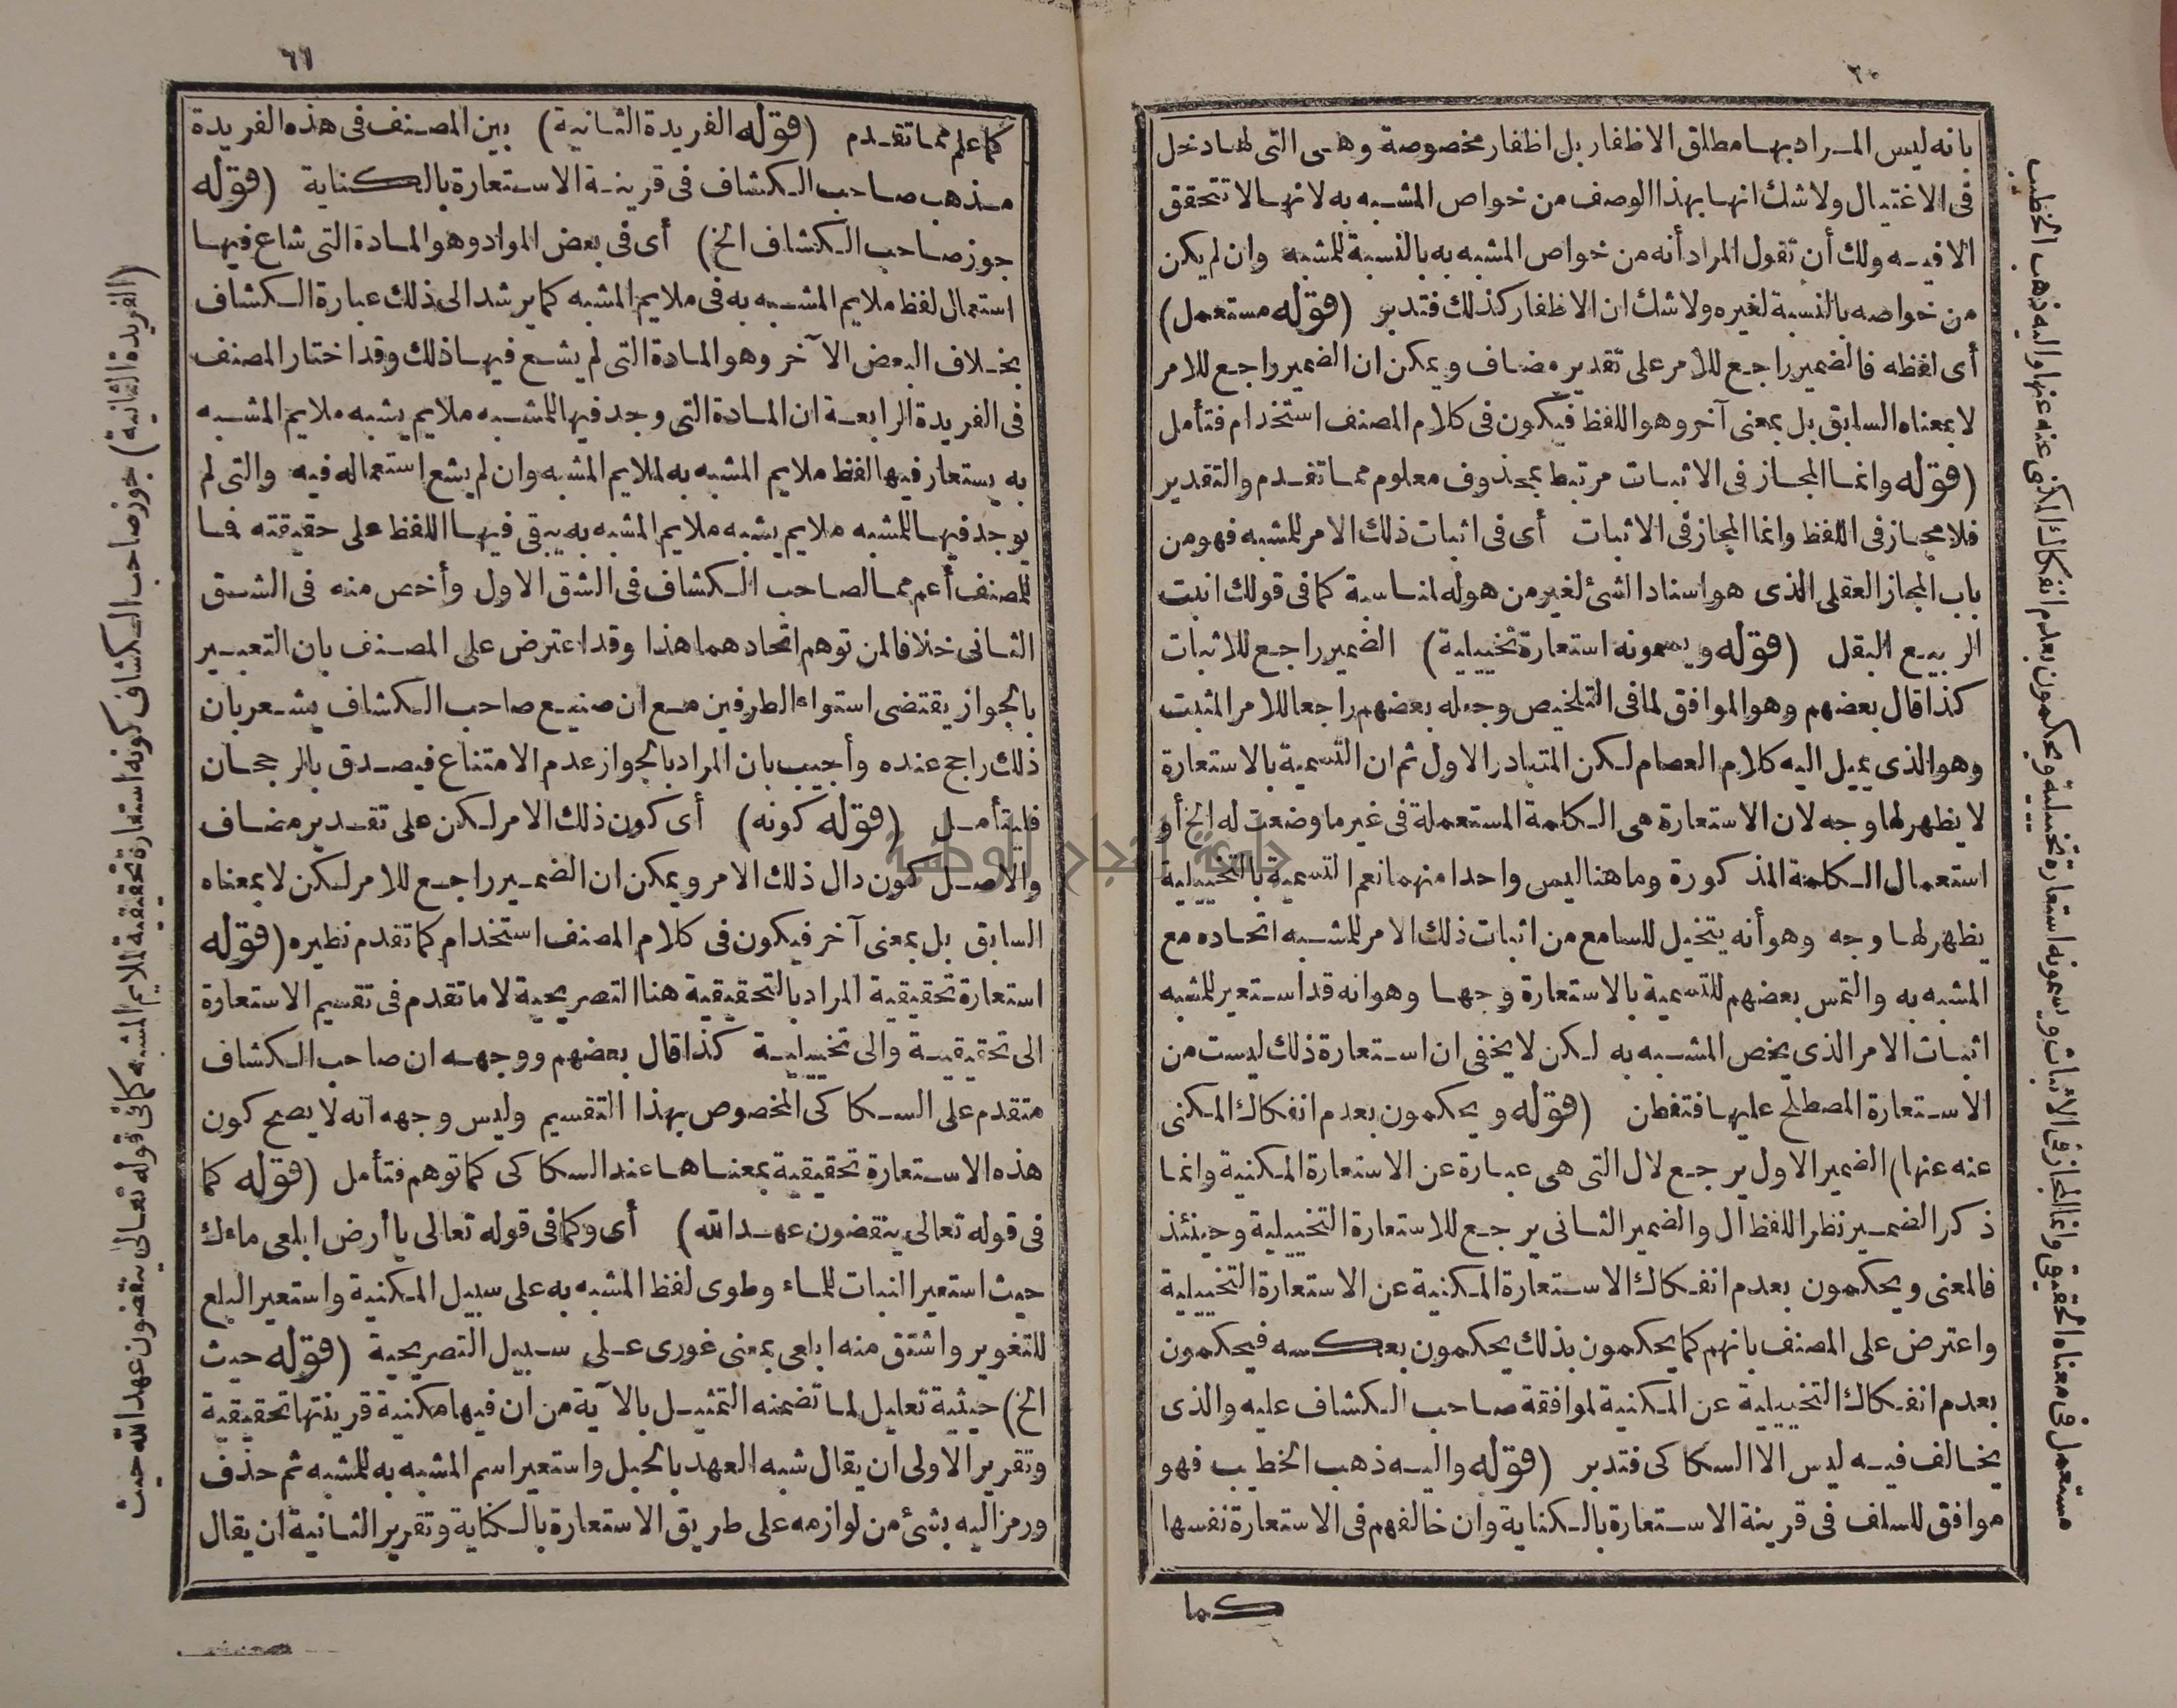 ٢٠
بانه ليس المراد بها مطلق الاظفار بل اظفار مخصوصة وهى التى لها دخل
فى الاغتيال ولا شك انها بهذا الوصف من خواص المشبه به لانها لا تتحقق
الا فيه ولك أن تقول المراد أنه من خواص المشبه به بالنسبة للمشبه وان لم يكن
من خواصه بالنسبة لغيره ولا شك ان الاظفار كذلك فتدبر (قوله مستعمل)
أى لفظه فالضمير راجع للأمر على تقدير مضاف ويمكن ان الضمير راجع للامر
لا بمعناه السابق بل بمعنى آخر وهو اللفظ فيكون فى كلام المصنف استخدام فتأمل
(قوله وانما المجاز فى الاثبات مرتبط بمحذوف معلوم مما تقدم والتقدير
فلا مجاز فى اللفظ وانما المجاز فى الاثبات أى فى اثبات ذلك الامر للمشبه فهو من
باب المجاز العقلى الذى هو اسناد الشئ لغير من هو له لمناسبة كما فى قولك انبت
الربيع البقل (قوله ويسمونه استعارة تخييلية) الضمير راجع للاثبات
كذا قال بعضهم وهو الموافق لما فى التلخيص وجعله بعضهم راجعا للامر المثبت
وهو الذى يميل اليه كلام العصام لكن المتبادر الاول ثم ان التسمية بالاستعارة
لا يظهر لها وجه لان الاستعارة هى الكلمة المستعملة فى غير ما وضعت له الخ أو
استعمال الكلمة المذكورة وما هنا ليس واحدا منهما نعم التسمية بالتخييلية
يظهر لها وجه وهو أنه يتخيل للسامع من اثبات ذلك الامر للمشبه اتحاده مع
المشبه به والتمس بعضهم للتسمية بالاستعارة وجها وهو انه قد استعير للمشبه
اثبات الامر الذى يخص المشبه به لكن لا يخفى ان استعارة ذلك ليست من
الاستعارة المصطلح عليها فتفطن (قوله ويحكمون بعدم انفكاك المكنى
عنه عنها) الضمير الاول يرجع لال التى هى عبارة عن الاستعارة المكنية وانما
ذكر الضمير نظر اللفظ ال والضمير الثانى يرجع للاستعارة التخييلية وحينئذ
فالمعنى ويحكمون بعدم انفكاك الاستعارة المكنية عن الاستعارة التخييلية
واعترض على المصنف بانهم كما يحكمون بذلك يحكمون بعكسه فيحكمون
بعدم انفكاك التخييلية عن المكنية لموافقة صاحب الكشاف عليه والذى
يخالف فيه ليس الا السكاكى فتدبر (قوله واليه ذهب الخطيب فهو
موافق للسلف فى قرينة الاستعارة بالكناية وان خالفهم فى الاستعارة نفسها
كما
مستعمل فى معناه الحقيقى وانما المجاز فى الاثبات ويسمونه استعارة تخييلية ويحكمون بعدم انفكاك المكنى عنه عنها واليه ذهب الخطيب
٦١
كما علم مما تقدم (قوله الفريدة الثانية) بين المصنف فى هذه الفريدة
مذهب صاحب الكشاف فى قرينة الاستعارة بالكناية (قوله
جوز صاحب الكشاف الخ) أى فى بعض المواد وهو المادة التى شاع فيها
استعمال لفظ ملايم المشبه به فى ملايم المشبه كما يرشد الى ذلك عبارة الكشاف
بخلاف البعض الآخر وهو المادة التى لم يشع فيها ذلك وقد اختار المصنف
فى الفريدة الرابعة ان المادة التى وجد فيها للمشبه ملايم يشبه ملايم المشبه
به يستعار فيها لفظ ملايم المشبه به لملايم المشبه وان لم يشع استعماله فيه والتى لم
يوجد فيها للمشبه ملايم يشبه ملايم المشبه به يبقى فيها اللفظ على حقيقته فما
للمصنف أعم مما لصاحب الكشاف فى الشق الاول وأخص منه فى الشق
الثانى خلافا لمن توهم اتحادهما هذا وقد اعترض على المصنف بان التعبير
بالجواز يقتضى استواء الطرفين مع ان صنيع صاحب الكشاف يشعر بان
ذلك راجح عنده وأجيب بان المراد بالجواز عدم الامتناع فيصدق بالرجحان
فليتأمل (قوله كونه) أى كون ذلك الامر لكن على تقدير مضاف
والاصل كون دال ذلك الامر ويمكن ان الضمير راجع للامر لكن لا بمعناه
السابق بل بمعنى آخر فيكون فى كلام المصنف استخدام كما تقدم نظيره (قوله
استعارة تحقيقية المراد بالتحقيقية هنا التصريحية لا ما تقدم فى تقسيم الاستعارة
الى تحقيقية والى تخييلية كذا قال بعضهم ووجهه ان صاحب الكشاف
متقدم على السكاكى المخصوص بهذا التقسيم وليس وجهه انه لا يصح كون
هذه الاستعارة تحقيقية بمعناها عند السكاكى كما توهم فتأمل (قوله كما
فى قوله تعالى ينقضون عهد الله) أى وكما فى قوله تعالى يا أرض ابلعى ماءك
حيث استعير النبات للماء وطوى لفظ المشبه به على سبيل المكنية واستعير البلع
للتغوير واشتق منه ابلعى بمعنى غورى على سبيل التصريحية (قوله حيث
الخ) حيثية تعليل لما تضمنه التمثيل بالآية من ان فيها مكنية قرينتها تحقيقية
وتقرير الاولى ان يقال شبه العهد بالحبل واستعير اسم المشبه به للمشبه ثم حذف
ورمز اليه بشئ من لوازمه على طريق الاستعارة بالكناية وتقرير الثانية ان يقال
(الفريدة الثانية) جوز صاحب الكشاف كونه استعارة تحقيقية لملايم المشبه كما فى قوله تعالى ينقضون عهد الله حيث
جامعة النجاح الوطنية